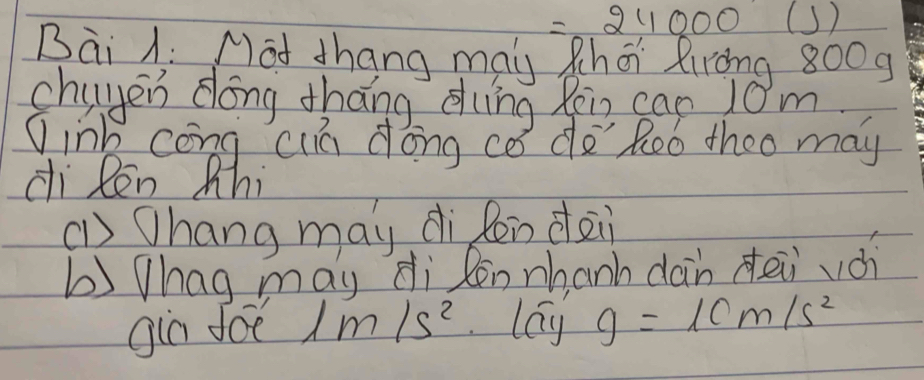 = 24000 (J)
Bài 1: Một thang máy khối lượng 800g
chuyển động thẳng đứng lên cao 10m.
Tính công của động cơ để kéo theo máy
đi lên khi
a) Thang máy đi lên đều
b) Thag máy đi lên nhanh dần đều với
gia tốc 1m/s². lấy g = 10m/s²